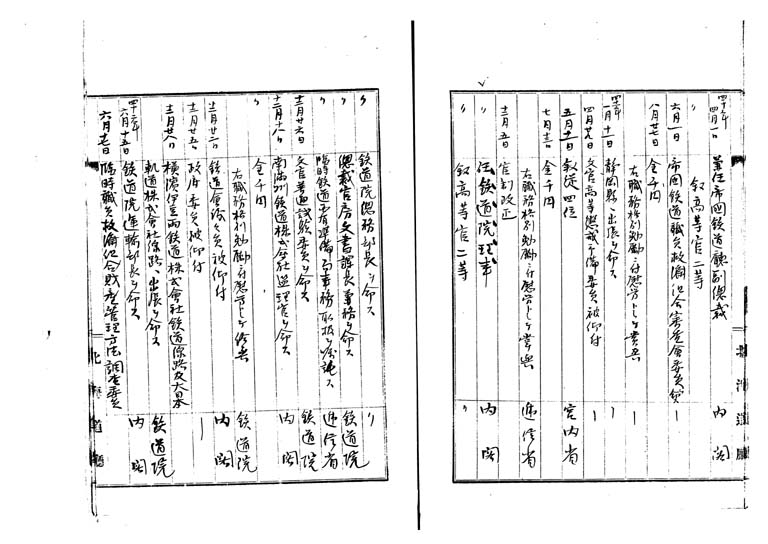 四十年四月一日 兼任帝国鉄道庁副総裁 内閣
叙高等官二等
六月一日 帝国鉄道職員救済組合審査会委員
八月廿七日 金千円
右職務格別勉励ニ付慰労トシテ賞与
十一日 静岡県ヘ出張ヲ命ス
四月廿九日 文官高等懲戒予備委員被仰付
五月十一日 叙従四位 宮内省
金千円
右職務格別勉励ニ付慰労トシテ賞与 逓信省
十二月五日 官制改正
〃 任鉄道院理事 内閣
〃 叙高等官二等 〃
〃 鉄道院総務部長ヲ命ス 〃
〃 総裁官房文書課長兼務ヲ命ス 鉄道院
〃 臨時鉄道国有準備局事務取扱ヲ嘱託ス 逓信省
十二月廿六日 文官普通試験委員ヲ命ス 鉄道院
十二月十八日 南満州鉄道株式会社監理官ヲ命ス 内閣
〃 金千円
右職務格別勉励ニ付慰労トシテ賞与 鉄道院
鉄道会議々員被仰付 内閣
政府委員被仰付
横浜伊豆両鉄道株式会社鉄道線路及大
軌道株式会社線路ヘ出張ヲ命ス 鉄道院
四十二年六月十五日 鉄道院運輸部長ヲ命ス 内閣
臨時職員救済組合財産管理方法調査委員
北海道庁
北海道庁